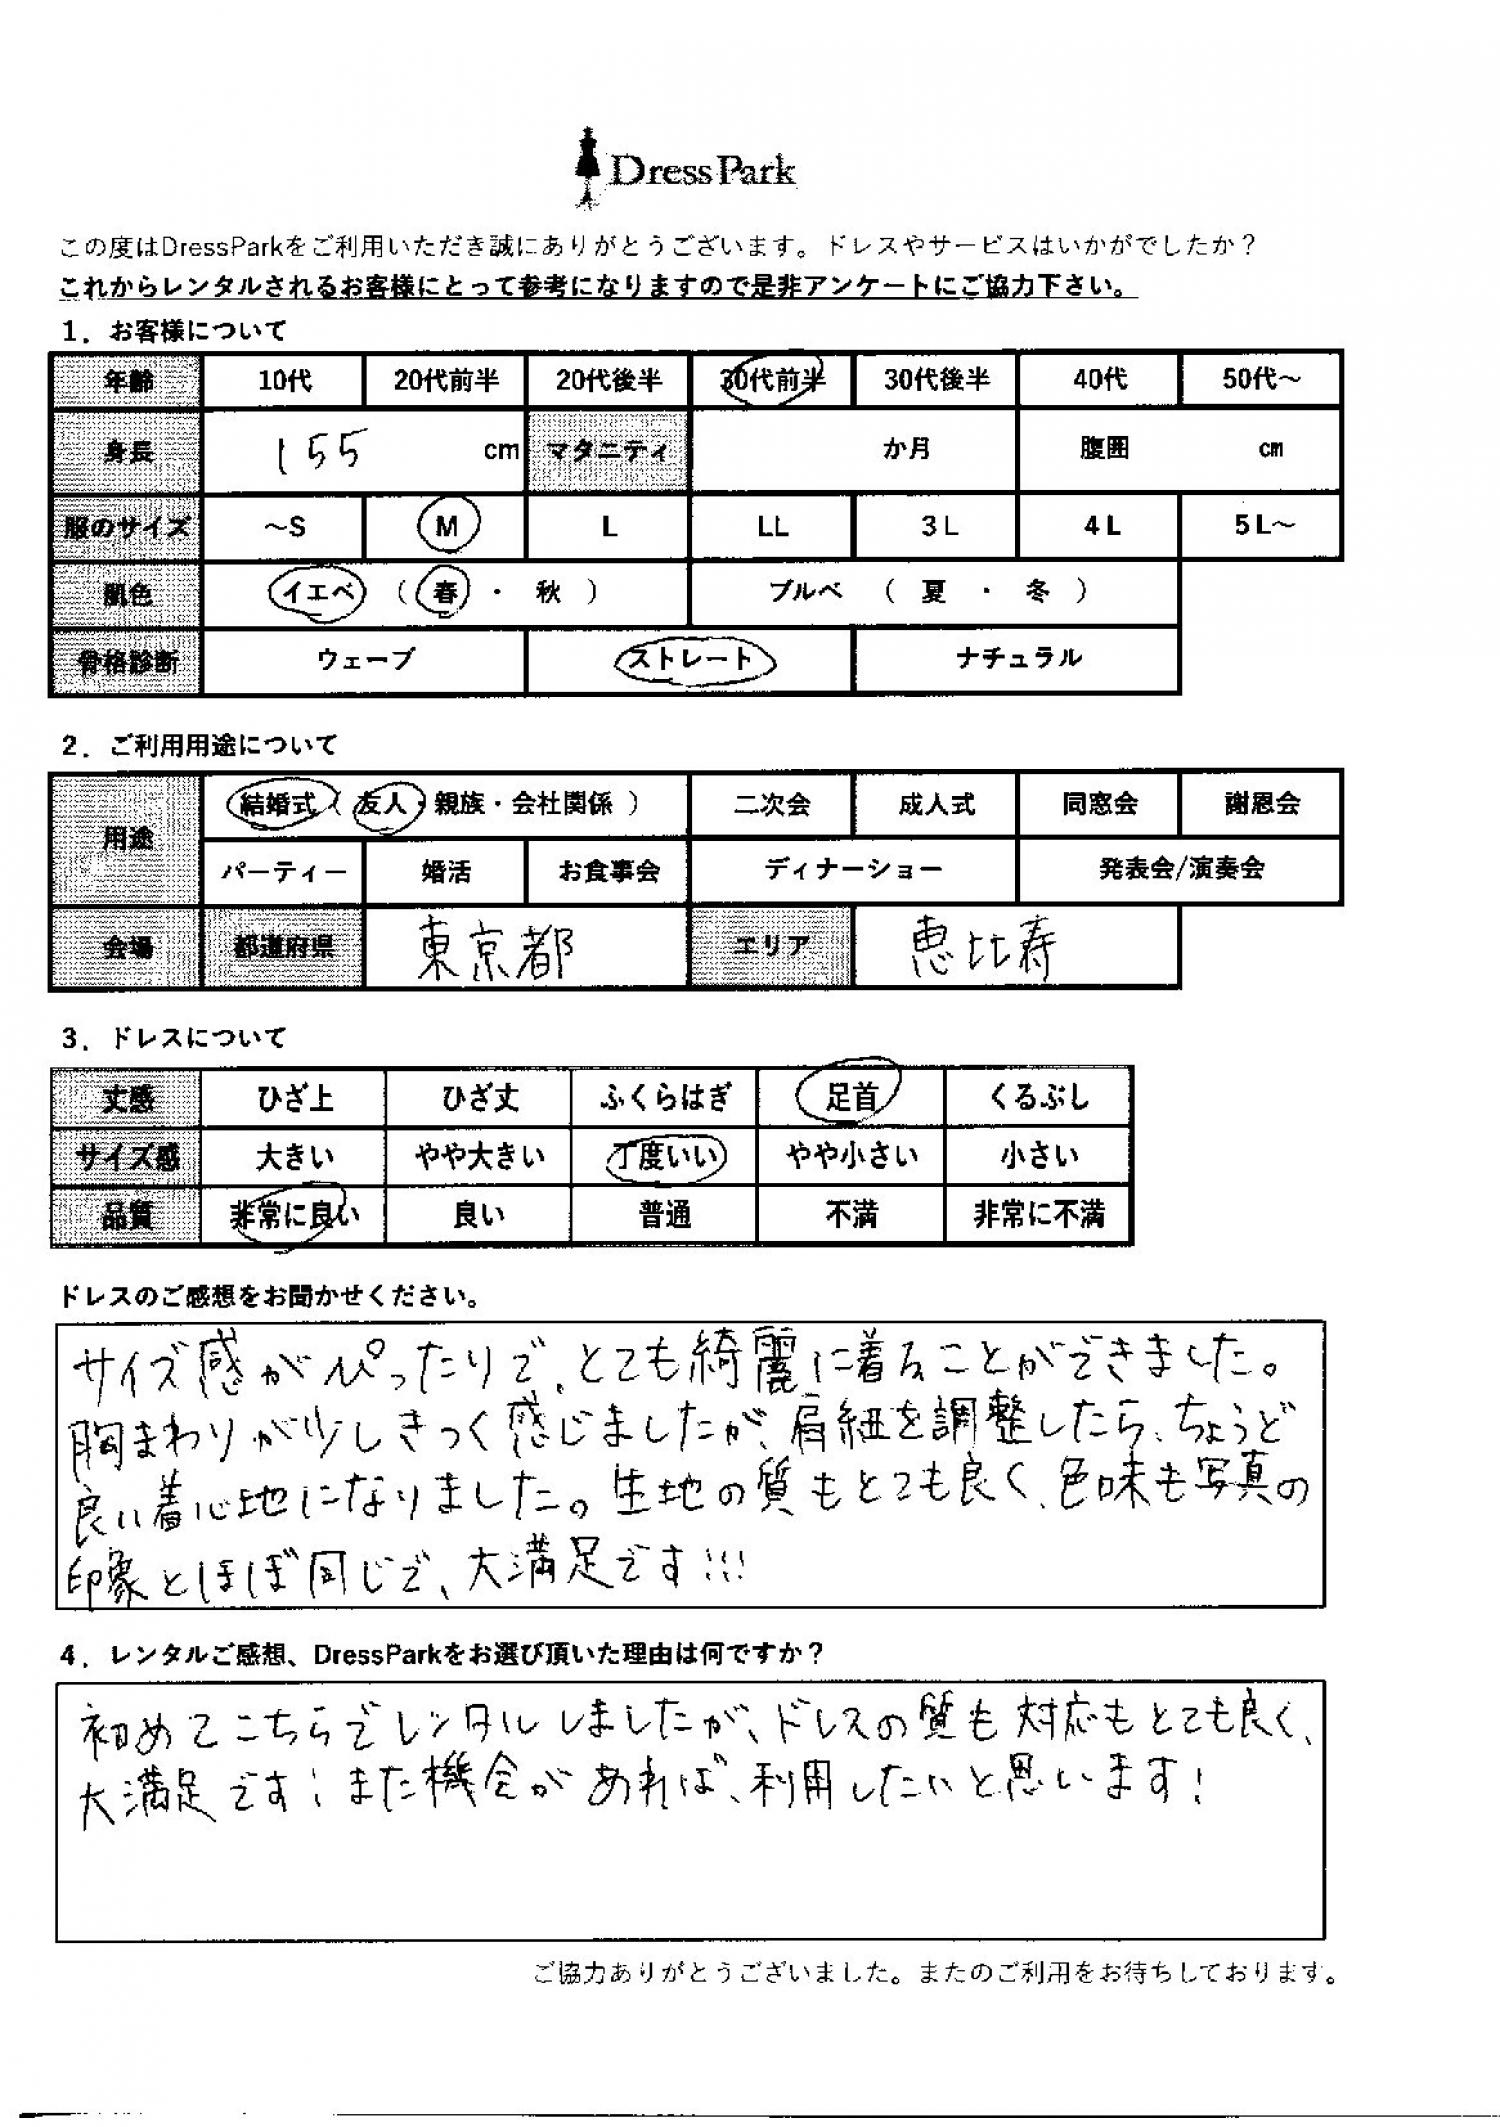 DressPark
この度はDressParkをご利用いただき誠にありがとうございます。ドレスやサービスはいかがでしたか？
これからレンタルされるお客様にとって参考になりますので是非アンケートにご協力下さい。
1．お客様について
年齢 10代 20代前半 20代後半 30代前半 30代後半 40代 50代～
身長 155 cm マタニティ か月 腹囲 cm
服のサイズ ～S M L LL 3L 4L 5L～
肌色 イエベ （ 春 ・ 秋 ） ブルベ （ 夏 ・ 冬 ）
骨格診断 ウェーブ ストレート ナチュラル
2．ご利用用途について
用途 結婚式（ 友人・親族・会社関係 ） 二次会 成人式 同窓会 謝恩会
パーティー 婚活 お食事会 ディナーショー 発表会/演奏会
会場 都道府県 東京都 エリア 恵比寿
3．ドレスについて
丈感 ひざ上 ひざ丈 ふくらはぎ 足首 くるぶし
サイズ感 大きい やや大きい 丁度いい やや小さい 小さい
品質 非常に良い 良い 普通 不満 非常に不満
ドレスのご感想をお聞かせください。
サイズ感がぴったりで、とても綺麗に着ることができました。
胸まわりが少しきつく感じましたが、肩紐を調整したら、ちょうど
良い着心地になりました。生地の質もとても良く、色味も写真の
印象とほぼ同じで、大満足です!!!
4．レンタルご感想、DressParkをお選び頂いた理由は何ですか？
初めてこちらでレンタルしましたが、ドレスの質も対応もとても良く、
大満足です！また機会があれば、利用したいと思います！
ご協力ありがとうございました。またのご利用をお待ちしております。